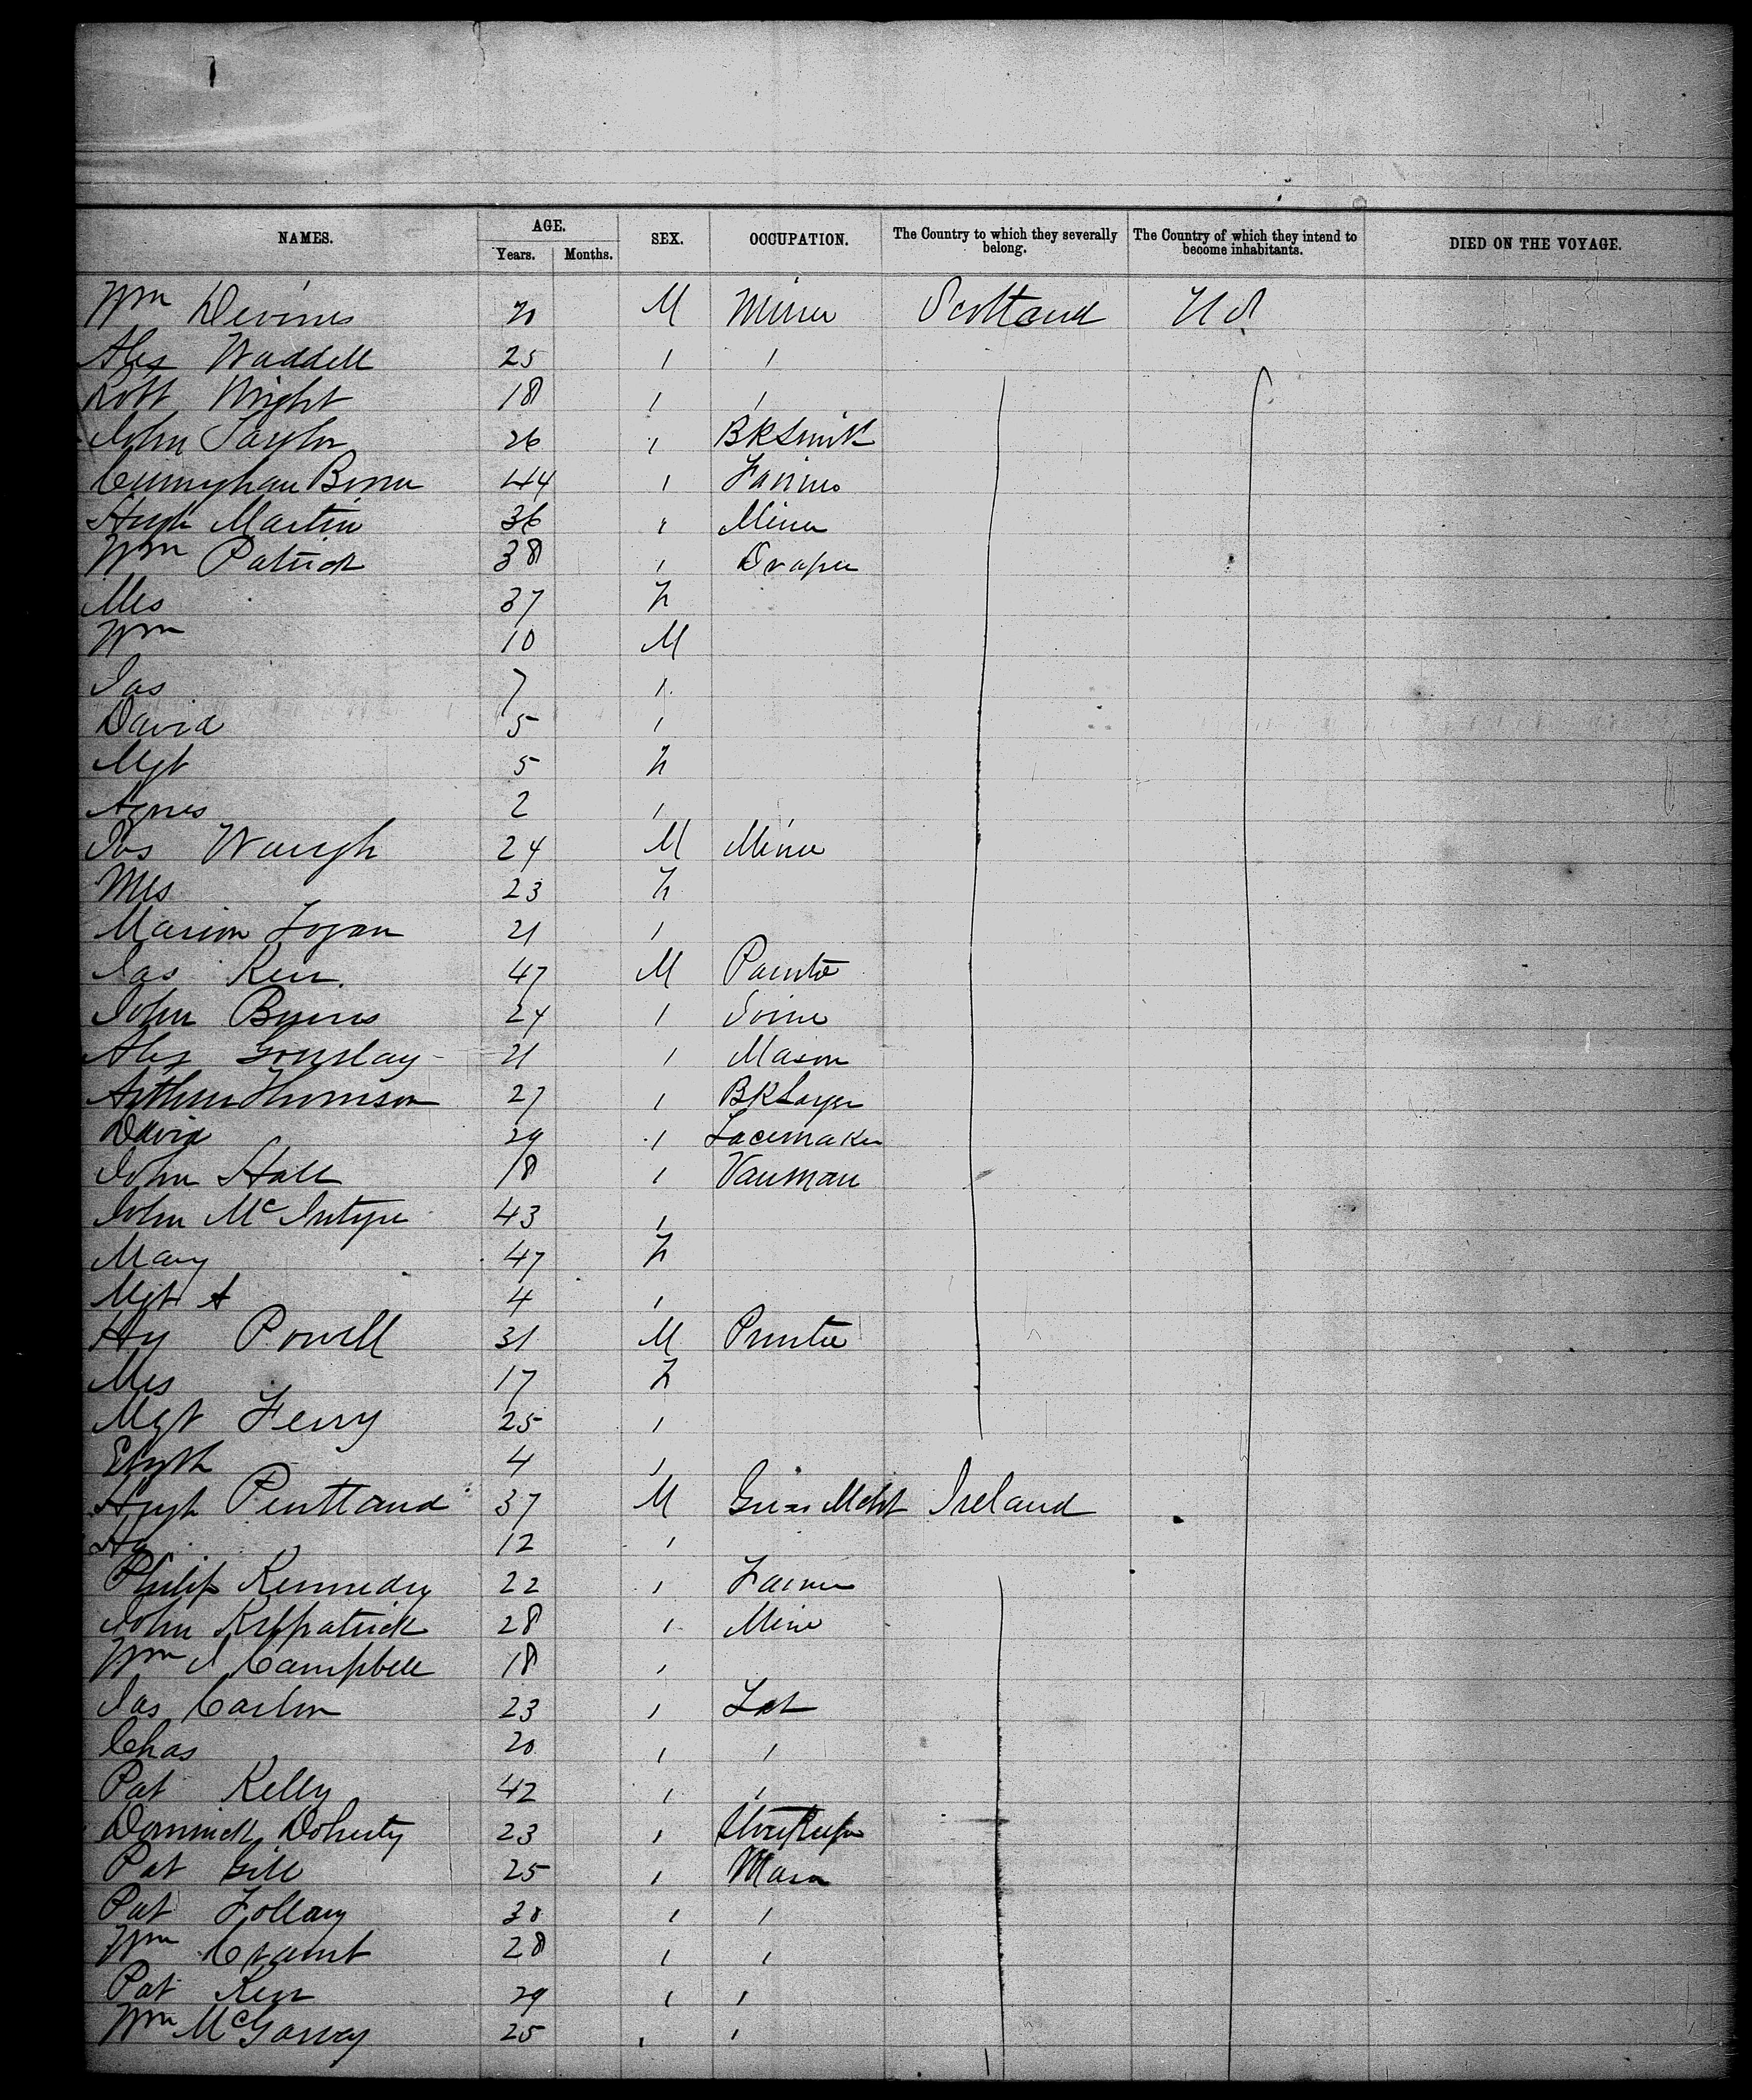 NAMES. AGE. SEX. OCCUPATION. The Country to which they severally belong. The Country of which they intend to become inhabitants. DIED ON THE VOYAGE.
Years. Months.
Wm Devine 20 M Miner Scotland U S
Alex Waddell 25 " "
Robt Wright 18 " "
John Taylor 26 " BkSmith
44 " Farmer
Hugh Martin 36 " Miner
Wm Patrick 38 " Draper
Mrs 37 F
Wm 10 M
Jas 7 "
David 5 "
Mgt 5 F
Agnes 2 "
Jas Waugh 24 M Miner
Mrs 23 F
Marion Logan 21 "
Jas Kerr 47 M Painter
John Byrnes 24 "
Alex Gourlay 21 " Mason
Arthur Thomson 27 " BkLayer
David 29 " Lacemaker
John Hall 18 " Vanman
John McIntyre 43 "
Mary 47 F
Mgt A 4 "
Hy Powell 31 M Printer
Mrs 17 F
Mgt Ferry 25 "
4 "
Hugh Pentland 37 M Mcht Ireland
Hy 12 "
Philip Kennedy 22 " Farmer
John Kilpatrick 28 " Miner
Wm J Campbell 18 "
Jas Carlin 23 " Lab
Chas 20 " "
Pat Kelly 42 " "
Dominick Doherty 23 "
Pat Gill 25 " Mason
Pat 30 " "
Wm 28 " "
Pat Kerr 29 " "
Wm McGarvey 25 " "